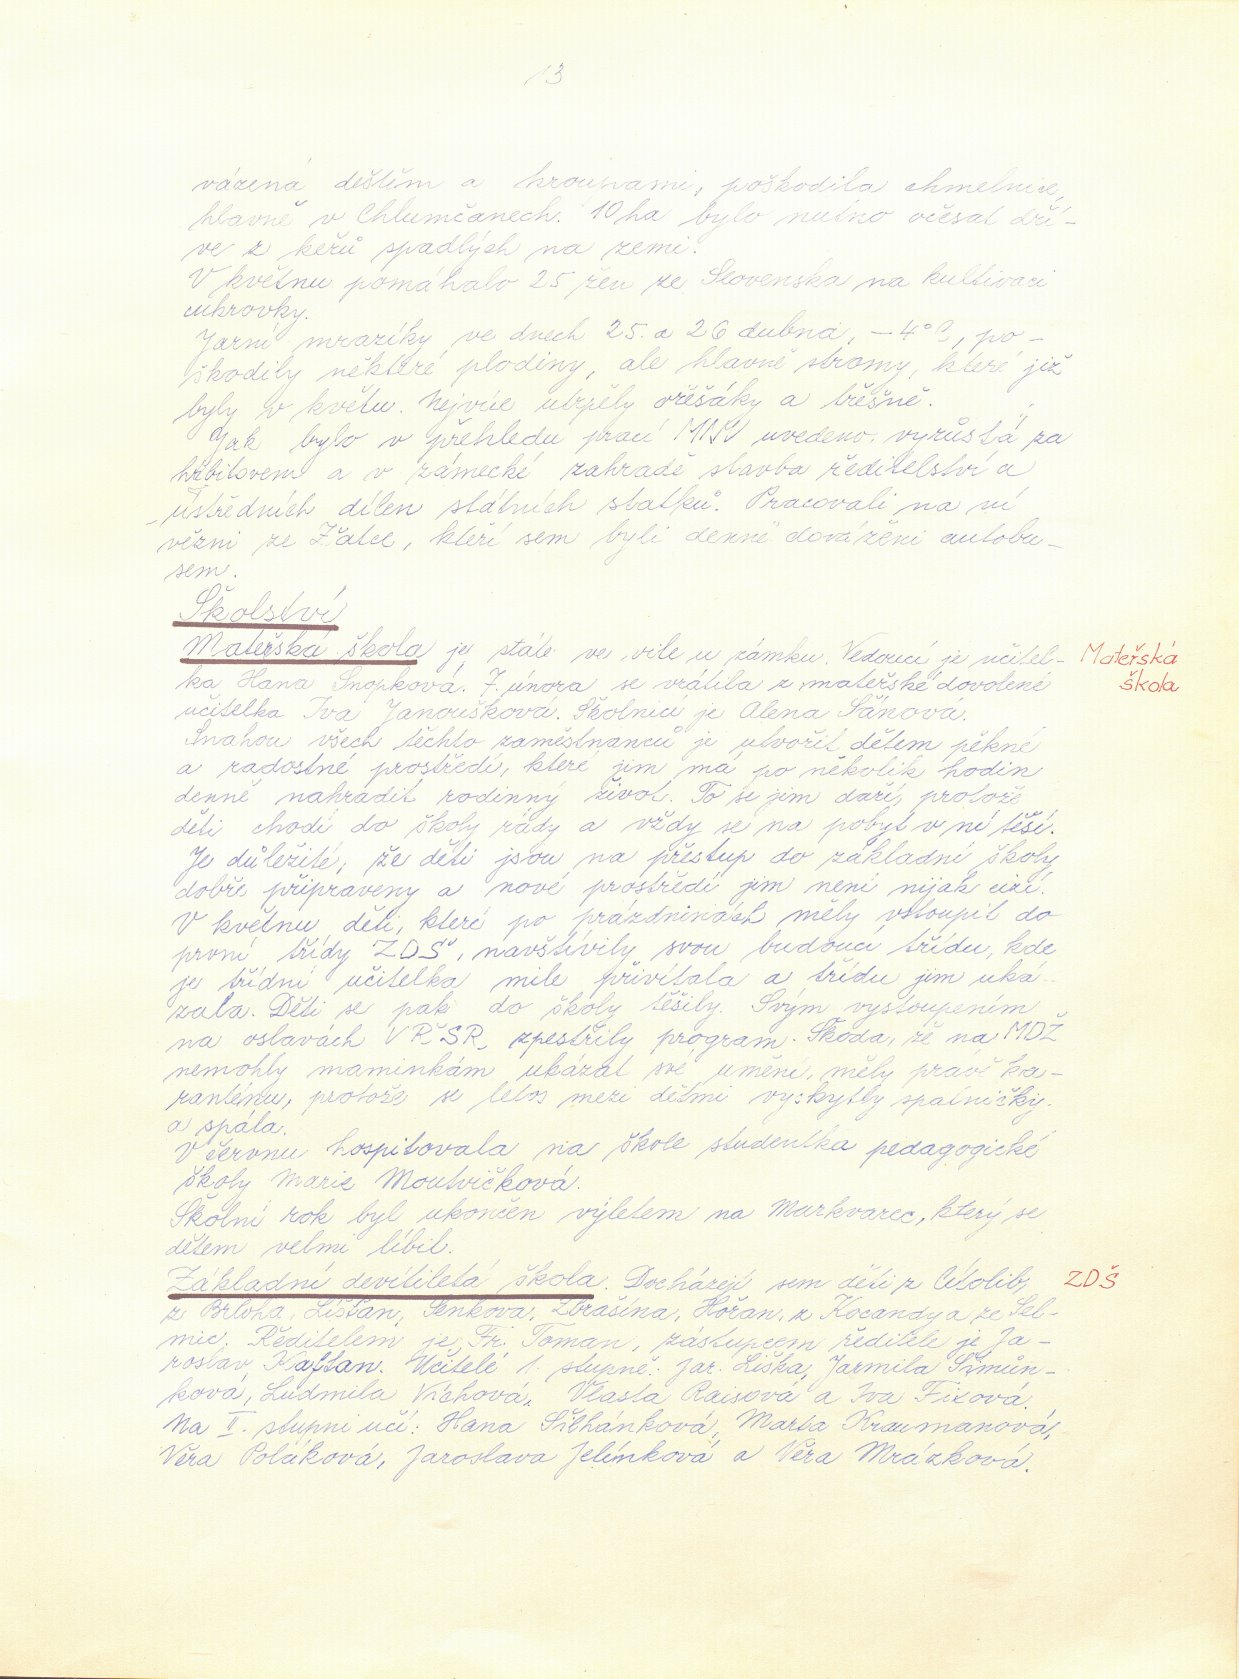 13
vázená deštěm a kroupami, poškodila chmelnice,
hlavně v Chlumčanech. 10 ha bylo nutno očesat dří-
ve z keřů spadlých na zemi.
V květnu pomáhalo 25 žen ze Slovenska na kultivaci
cukrovky.
Jarní mrazíky ve dnech 25. a 26 dubna, -4°C, po-
škodily některé plodiny, ale hlavně stromy, které již
byly v květu. Nejvíce utrpěly ořešáky a třešně.
Jak bylo v přehledu prací MNV uvedeno, vyrůstá za
hřbitovem a v zámecké zahradě stavba ředitelství a
Ústředních dílen státních statků. Pracovali na ní
vězni ze Žatce, kteří sem byli denně dováženi autobu-
sem.
Školství
Mateřská škola je stále ve vile u zámku. Vedoucí je učitel-
Mateřská
škola
ka Hana Snopková. 7. února se vrátila z mateřské dovolené
učitelka Iva Janoušková. Školnicí je Alena Šánová.
Snahou všech těchto zaměstnanců je utvořit dětem pěkné
a radostné prostředí, které jim má po několik hodin
denně nahradit rodinný život. To se jim daří, protože
děti chodí do školy rády a vždy se na pobyt v ní těší.
Je důležité, že děti jsou na přestup do základní školy
dobře připraveny a nové prostředí jim není nijak cizí.
V květnu děti, které po prázdninách měly vstoupit do
první třídy ZDŠ, navštívily svou budoucí třídu, kde
je třídní učitelka mile přivítala a třídu jim uká-
zala. Děti se pak do školy těšily. Svým vystoupením
na oslavách VŘSR zpestřily program. Škoda, že na MDŽ
nemohly maminkám ukázat své umění, měly právě ka-
ranténu, protože se letos mezi dětmi vyskytly spalničky
a spála.
V červnu hospitovala na škole studentka pedagogické
školy Marie Moutvičková.
Školní rok byl ukončen výletem na Markvarec, který se
dětem velmi líbil.
Základní devítiletá škola. Docházejí sem děti z Cítolib,
ZDŠ
z Brloha, Líšťan, Senkova, Zbrašína, Hořan, z Kocandy a ze Sel-
mic. Ředitelem je Fr. Toman, zástupcem ředitele je Ja-
roslav Kaftan. Učitelé 1. stupně: Jar. Liška, Jarmila Šimůn-
ková, Ludmila Víchová, Vlasta Raisová a Iva Fixová.
Na II. stupni učí: Hana Šilhánková, Marta Kraumanová,
Věra Poláková, Jaroslava Jelínková a Věra Mrázková.